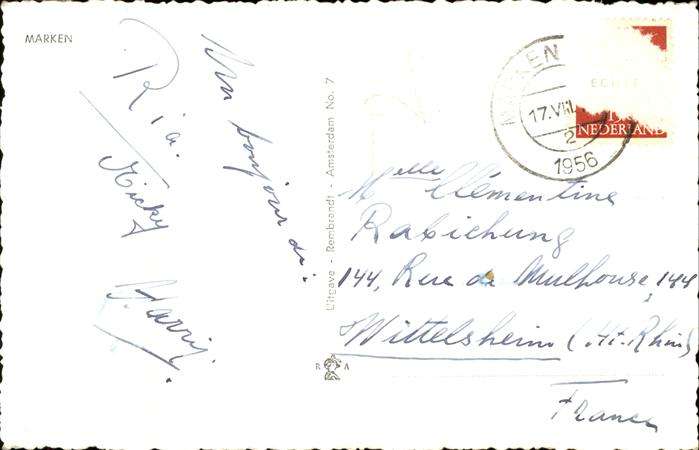 MARKEN
Un bonjour de:
Ria.
Nicky
Uitgave - Rembrandt - Amsterdam No. 7
R A
MARKEN
17.VIII
2
1956
NEDERLAND
Melle Clémentine
Rabichung
144, Rue de Mulhouse, 144
Wittelsheim (Ht-Rhin)
France